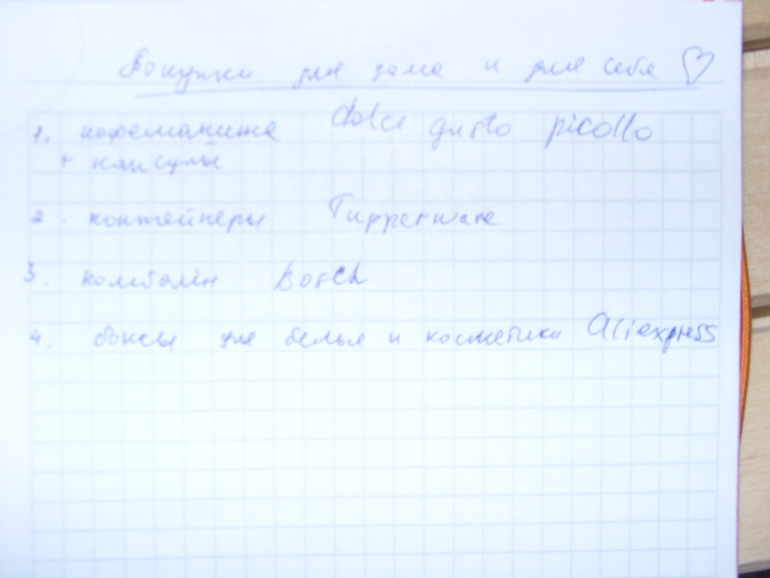 Покупки для дома и для себя ♡
1. кофемашина dolce gusto picollo
+ капсулы
2. контейнеры Tupperware
3. комбайн Bosch
4. боксы для белья и косметики Aliexpress